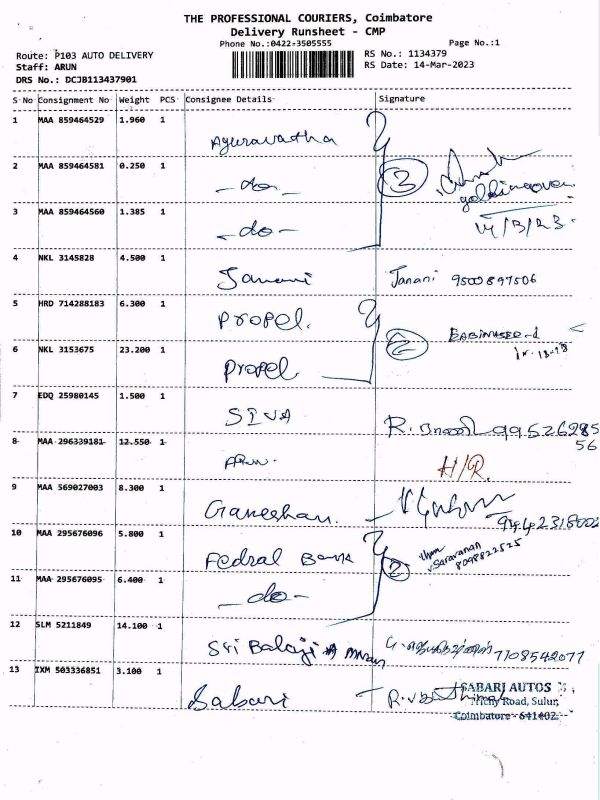 THE PROFESSIONAL COURIERS, Coimbatore
Delivery Runsheet - CMP
Phone No.:0422-3505555 Page No.:1
Route: P103 AUTO DELIVERY RS No.: 1134379
Staff: ARUN RS Date: 14-Mar-2023
DRS No.: DCJB113437901
S No Consignment No Weight PCS Consignee Details Signature
1 MAA 859464529 1.960 1
2 MAA 859464581 0.250 1 -do- 3
3 MAA 859464560 1.385 1 -do- 14/3/23
4 NKL 3145828 4.500 1 Janani Janani 9500897506
5 HRD 714288183 6.300 1 Propel.
6 NKL 3153675 23.200 1 Propel 2
7 EDQ 25980145 1.500 1 SIVA R. 9952628556
8 MAA 296339181 12.550 1 Arun. H/R.
9 MAA 569027003 8.300 1 Ganeshan. 9442318002
10 MAA 295676096 5.800 1 Fedral Bank Saravanan
8098822525
11 MAA 295676095 6.400 1 -do- 2
12 SLM 5211849 14.100 1 Sri Balaji 7708542077
13 IXM 503336851 3.100 1 Sabari SABARI AUTOS
Trichy Road, Sulur,
Coimbatore - 641402.